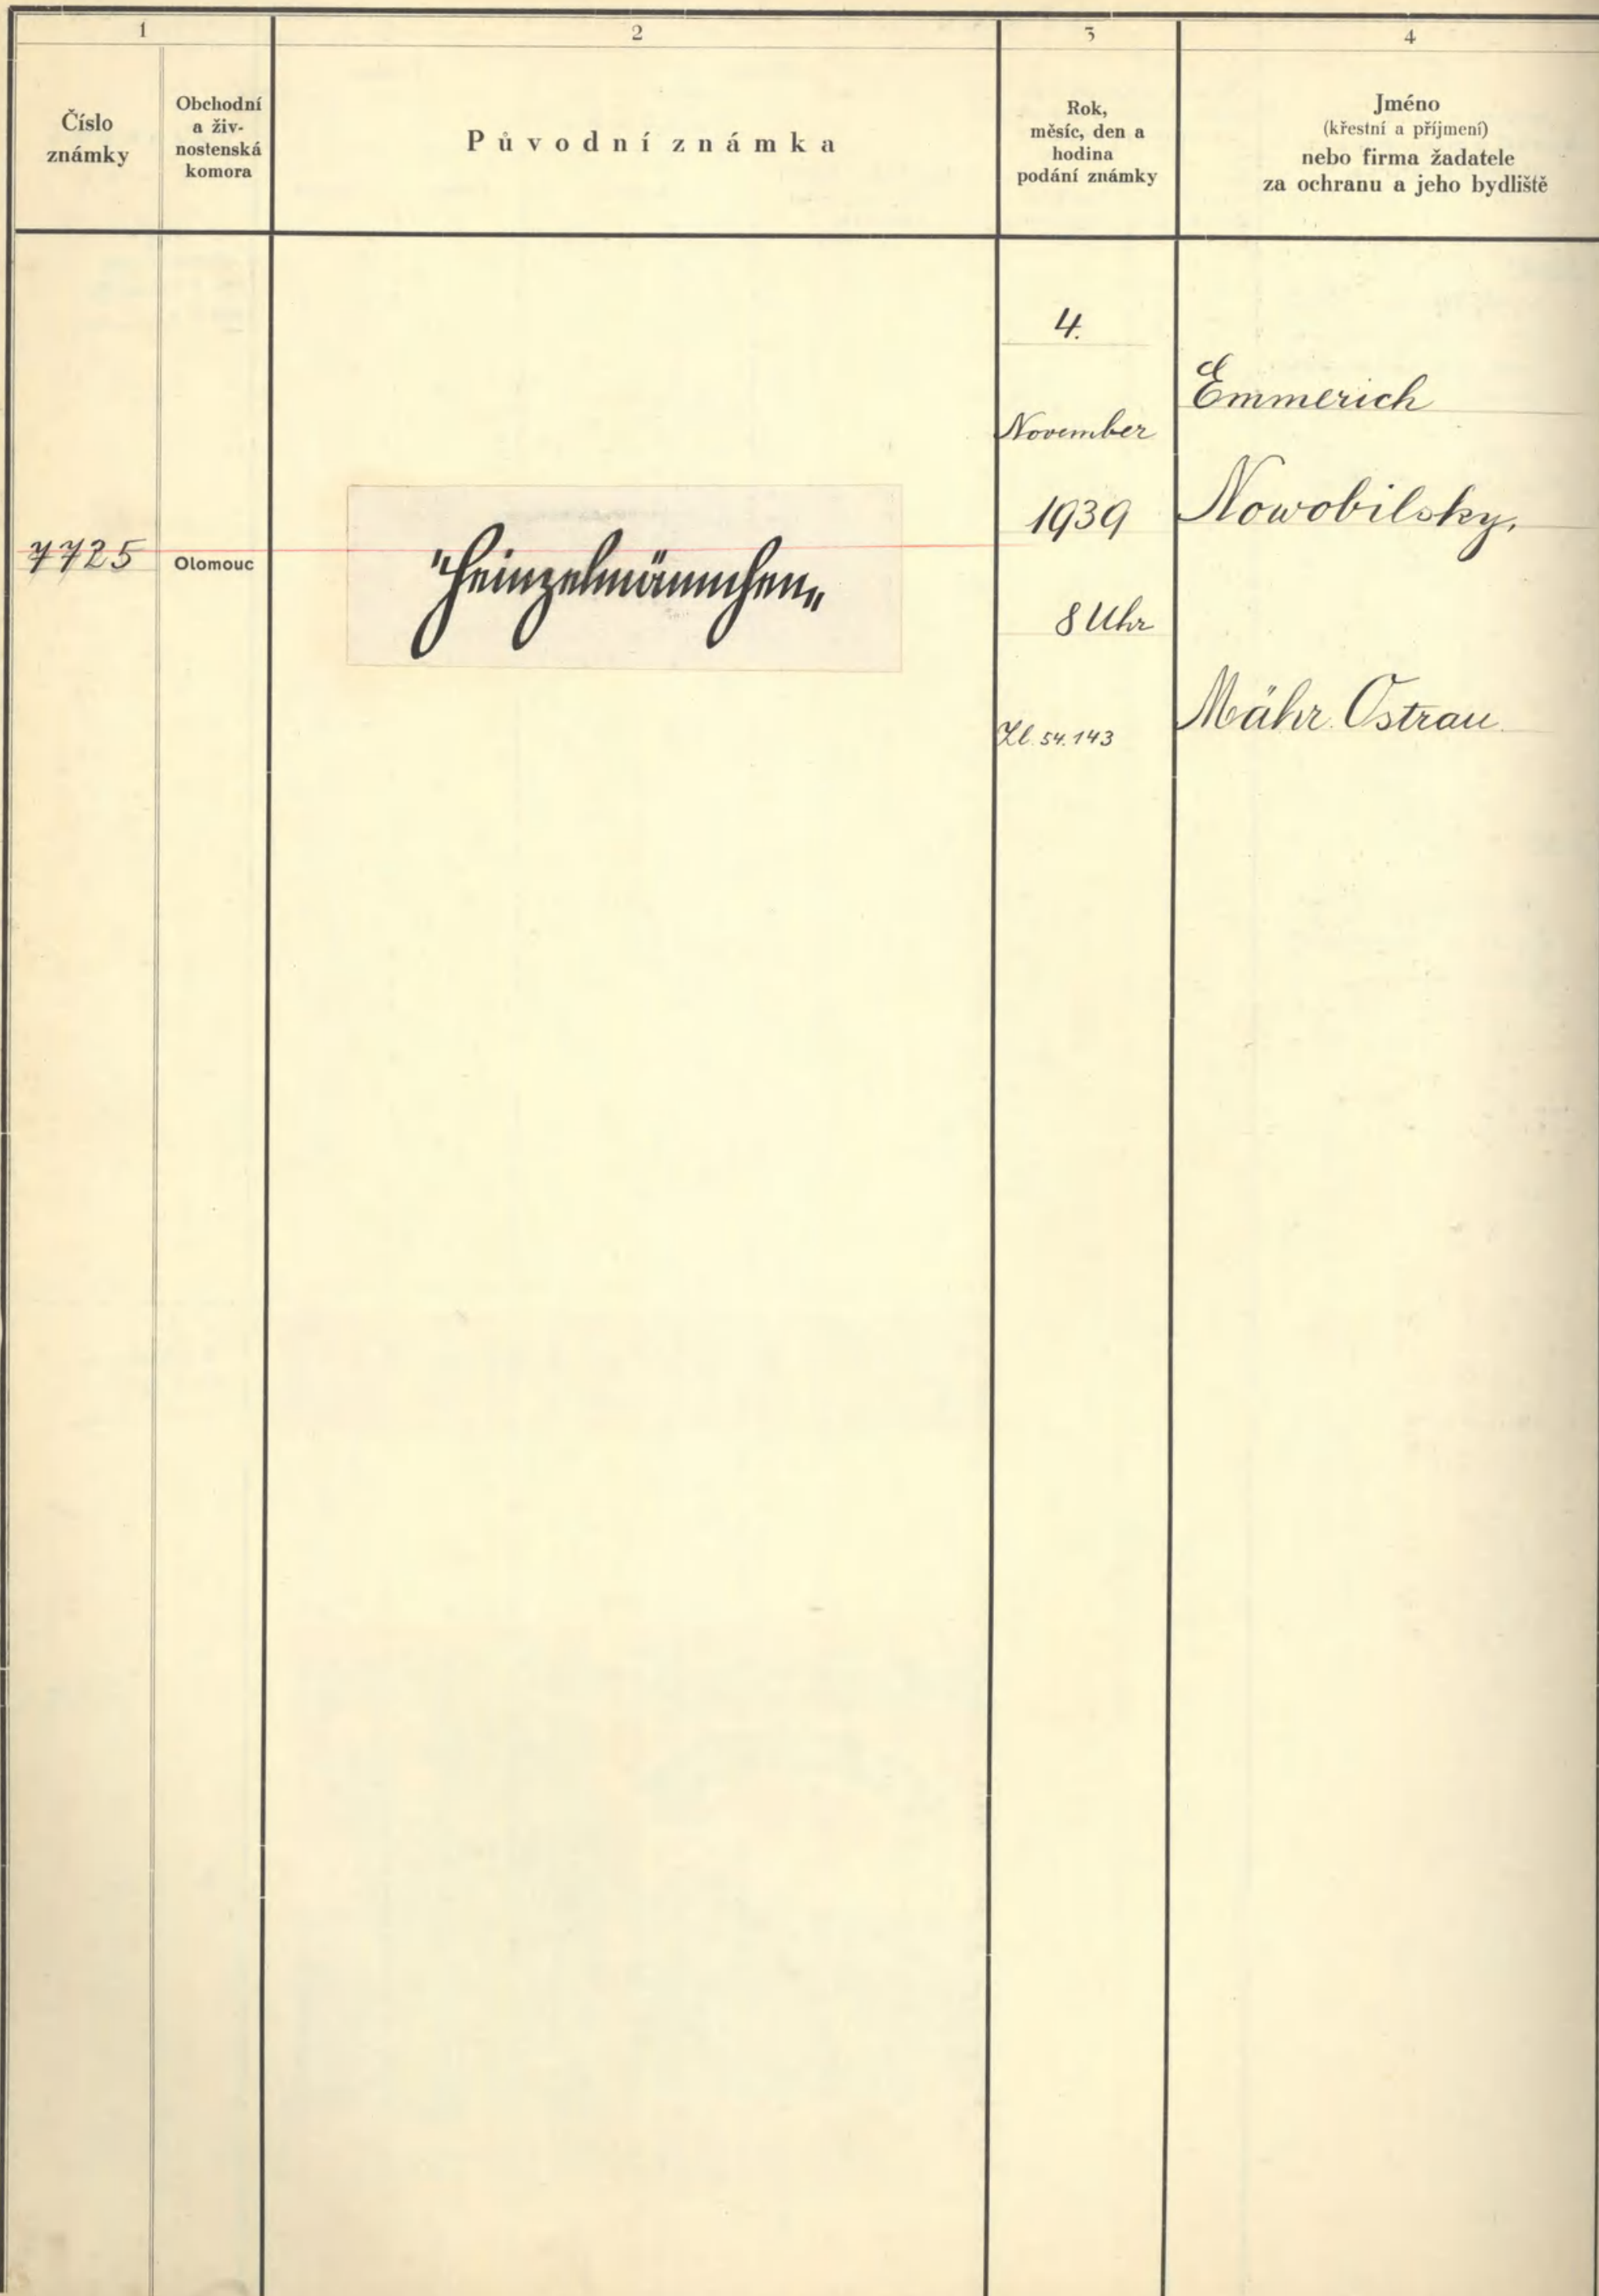 1
2
3
4
Číslo
známky
Obchodní
a živ-
nostenská
komora
Původní známka
Rok,
měsíc, den a
hodina
podání známky
Jméno
(křestní a příjmení)
nebo firma žadatele
za ochranu a jeho bydliště
7725
Olomouc
"Heinzelmännchen„
4.
November
1939
8 Uhr
Zl. 54.143
Emmerich
Nowobilsky,
Mähr. Ostrau.